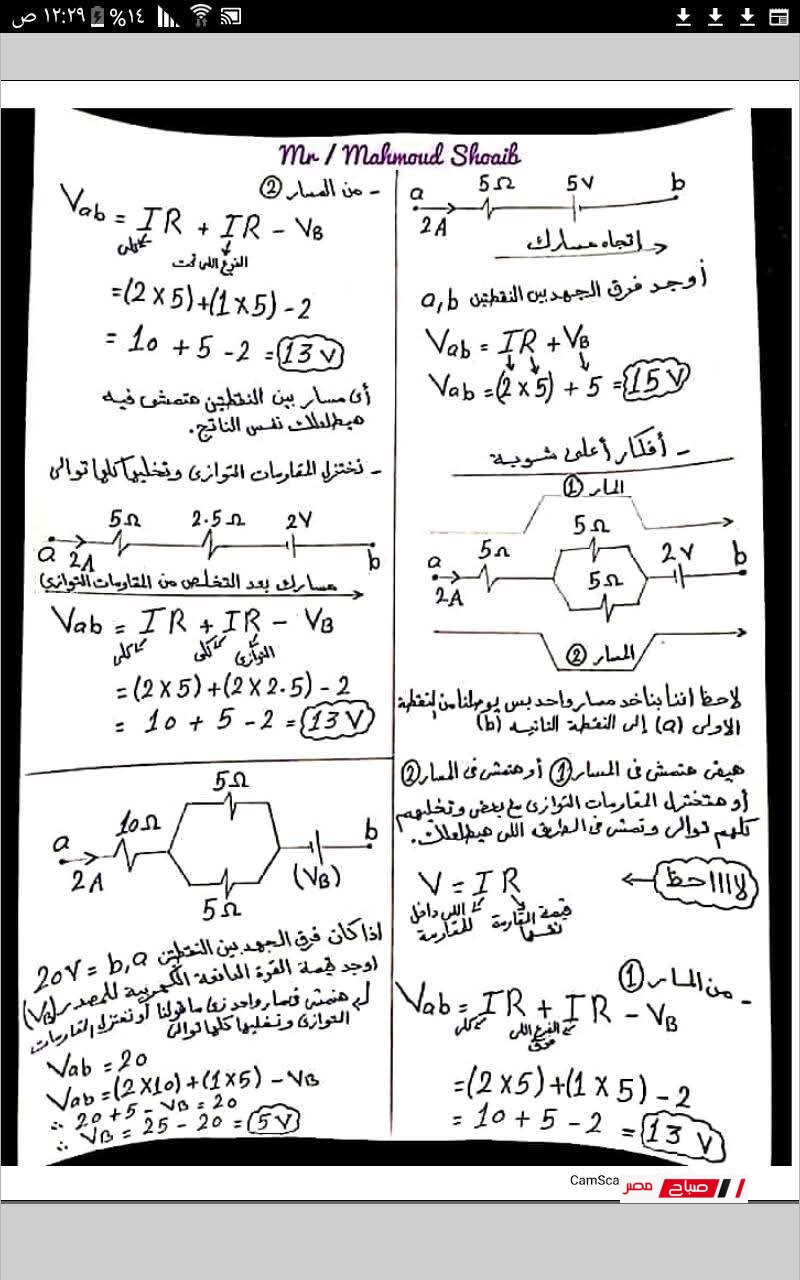 ١٢:٢٩ ص
١٤%
Mr / Mahmoud Shoaib
a 5Ω 5V b
2A
إتجاه مسارك
أوجد فرق الجهد بين النقطتين a,b
Vab = IR + VB
Vab = (2 x 5) + 5 = 15 V
- أفكار أعلى شوية
المسار ①
5Ω
a 5Ω 5Ω 2V b
2A
المسار ②
لاحظ اننا بناخد مسار واحد بس يوصلنا من النقطة
الاولى (a) إلى النقطة الثانيه (b)
هتمشى فى المسار ① أو هتمشى فى المسار ②
أو هتختزل المقاومات التوازى مع بعض وتخليهم
كلهم توالى وتمشى فى الطريق اللى هيطلعلك.
لااااحظ
V = IR
اللى داخل المقاومة
قيمة المقاومة نفسها
- من المسار ①
Vab = IR + IR - VB
كلى
الفرع اللى فوق
= (2x5) + (1x5) - 2
= 10 + 5 - 2 = 13 V
- من المسار ②
Vab = IR + IR - VB
كلى
الفرع اللى تحت
= (2x5) + (1x5) - 2
= 10 + 5 - 2 = 13 V
أى مسار بين النقطتين هتمشى فيه
هيطلعلك نفس الناتج.
- نختزل المقاومات التوازى وتخليها كلها توالى
5Ω 2.5Ω 2V
a 2A b
مسارك بعد التخلص من المقاومات التوازى
Vab = IR + IR - VB
كلى كلى التوازى
= (2x5) + (2x2.5) - 2
= 10 + 5 - 2 = 13 V
5Ω
a 10Ω b
2A (VB)
5Ω
اذا كان فرق الجهد بين النقطتين b,a = 20V
اوجد قيمة القوة الدافعة الكهربية للمصدر (VB)
هنمشى فمسار واحد زى ما قولنا أو نختزل المقاومات
التوازى ونخليها كلها توالى
Vab = 20
Vab = (2x10) + (1x5) - VB
∴ 20 + 5 - VB = 20
∴ VB = 25 - 20 = 5V
CamSca
صباح مصر